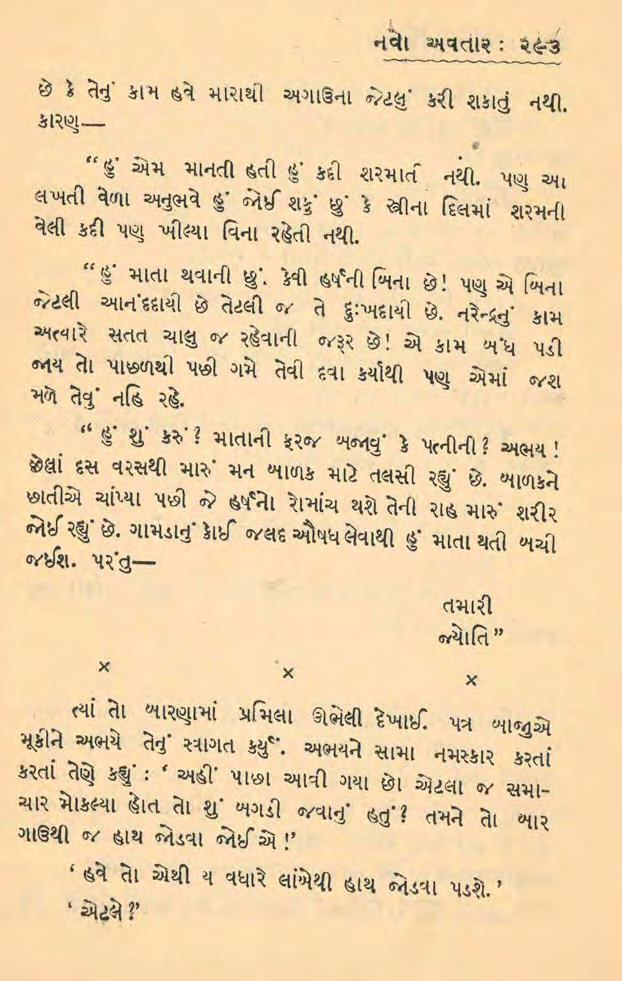 નવો અવતાર : ૨૯૩
છે કે તેનું કામ હવે મારાથી અગાઉના જેટલું કરી શકાતું નથી.
કારણ—
“હું એમ માનતી હતી હું કદી શરમાતી નથી. પણ આ
લખતી વેળા અનુભવે હું જોઈ શકું છું કે સ્ત્રીના દિલમાં શરમની
વેલી કદી પણ ખીલ્યા વિના રહેતી નથી.
“હું માતા થવાની છું. કેવી હર્ષની બિના છે! પણ એ બિના
જેટલી આનંદદાયી છે તેટલી જ તે દુઃખદાયી છે. નરેન્દ્રનું કામ
અત્યારે સતત ચાલુ જ રહેવાની જરૂર છે! એ કામ બંધ પડી
જાય તો પાછળથી પછી ગમે તેવી દવા કર્યાથી પણ એમાં જશ
મળે તેવું નહિ રહે.
“હું શું કરું? માતાની ફરજ બજાવું કે પત્નીની? અભય!
છેલ્લાં દસ વરસથી મારું મન બાળક માટે તલસી રહ્યું છે. બાળકને
છાતીએ ચાંપ્યા પછી જે હર્ષનો રોમાંચ થશે તેની રાહ મારું શરીર
જોઈ રહ્યું છે. ગામડાનું કોઈ જલદ ઔષધ લેવાથી હું માતા થતી બચી
જઈશ. પરંતુ—
તમારી
જ્યોતિ”
× × ×
ત્યાં તો બારણામાં પ્રમિલા ઊભેલી દેખાઈ. પત્ર બાજુએ
મૂકીને અભયે તેનું સ્વાગત કર્યું. અભયને સામા નમસ્કાર કરતાં
કરતાં તેણે કહ્યું : ‘અહીં પાછા આવી ગયા છો એટલા જ સમા-
ચાર મોકલ્યા હોત તો શું બગડી જવાનું હતું? તમને તો બાર
ગાઉથી જ હાથ જોડવા જોઈએ!’
‘હવે તો એથી ય વધારે લાંબેથી હાથ જોડવા પડશે.’
‘એટલે?’